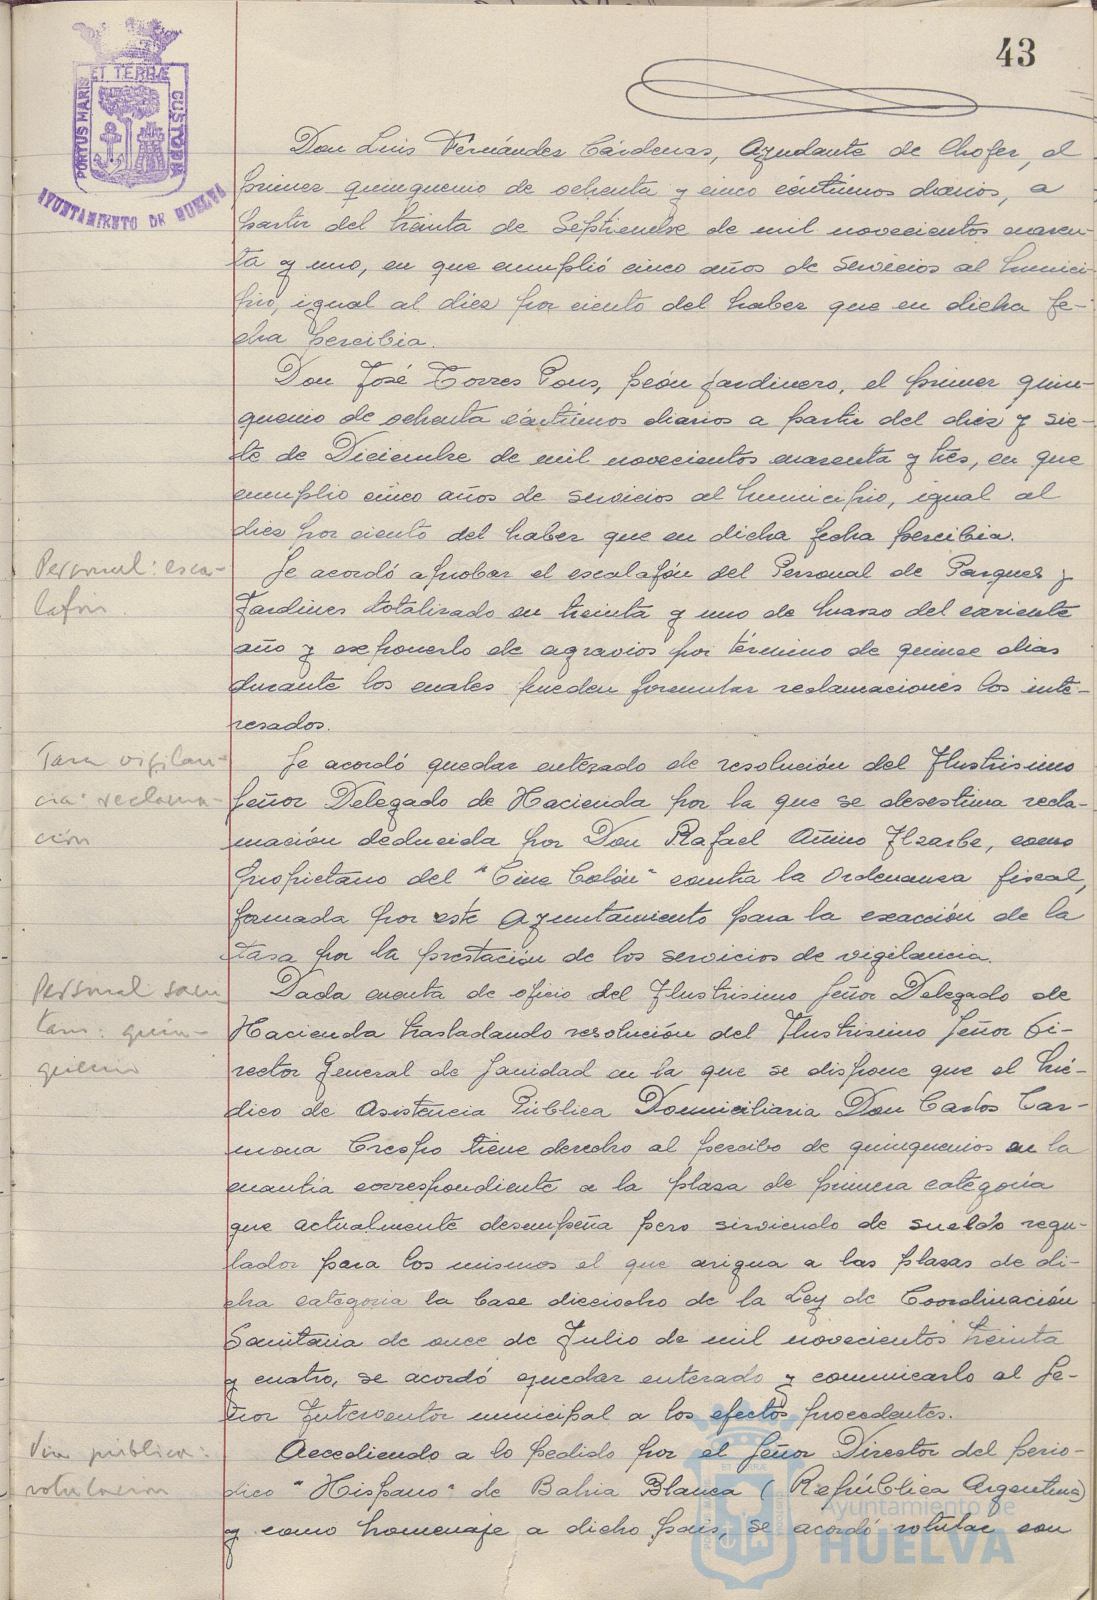 43
ET TERRÆ
PORTUS MARIS
CUSTODIA
AYUNTAMIENTO DE HUELVA
Don Luis Fernández Cárdenas, Ayudante de Chofer, el
primer quinquenio de ochenta y cinco céntimos diarios, a
partir del treinta de Septiembre de mil novecientos cuaren-
ta y uno, en que cumplió cinco años de servicios al munici-
pio, igual al diez por ciento del haber que en dicha fe-
cha percibia.
Don José Torres Pons, peón jardinero, el primer quin-
quenio de ochenta céntimos diarios a partir del diez y sie-
te de Diciembre de mil novecientos cuarenta y tres, en que
cumplio cinco años de servicios al municipio, igual al
diez por ciento del haber que en dicha fecha percibia.
Personal: esca-
lafón.
Se acordó aprobar el escalafón del Personal de Parques y
Jardines totalizado en treinta y uno de marzo del corriente
año y exponerlo de agravios por término de quince dias
durante los cuales pueden formular reclamaciones los inte-
resados.
Tasa vigilan-
cia: reclama-
ción
Se acordó quedar enterado de resolución del Ilustrisimo
Señor Delegado de Hacienda por la que se desestima recla-
mación deducida por Don Rafael Ilzarbe, como
propietario del "Cine Colón" contra la Ordenanza fiscal,
formada por este Ayuntamiento para la exacción de la
tasa por la prestación de los servicios de vigilancia.
Personal sani
tario: quin-
quenio
Dada cuenta de oficio del Ilustrisimo Señor Delegado de
Hacienda trasladando resolución del Ilustrisimo Señor Di-
rector General de Sanidad en la que se dispone que el mé-
dico de Asistencia Pública Domiciliaria Don Carlos Car-
mona Crespo tiene derecho al percibo de quinquenios en la
cuantia correspondiente a la plaza de primera categoria
que actualmente desempeña pero sirviendo de sueldo regu-
lador para los mismos el que asigna a las plazas de di-
cha categoria la base dieciocho de la Ley de Coordinación
Sanitaria de once de Julio de mil novecientos treinta
y cuatro, se acordó quedar enterado y comunicarlo al Se-
ñor Interventor municipal a los efectos procedentes.
Via pública:
rotulacion
Accediendo a lo pedido por el Señor Director del perio-
dico "Hispano" de Bahia Blanca (República Argentina)
y como homenaje a dicho pais, se acordó rotular con
Ayuntamiento de
HUELVA